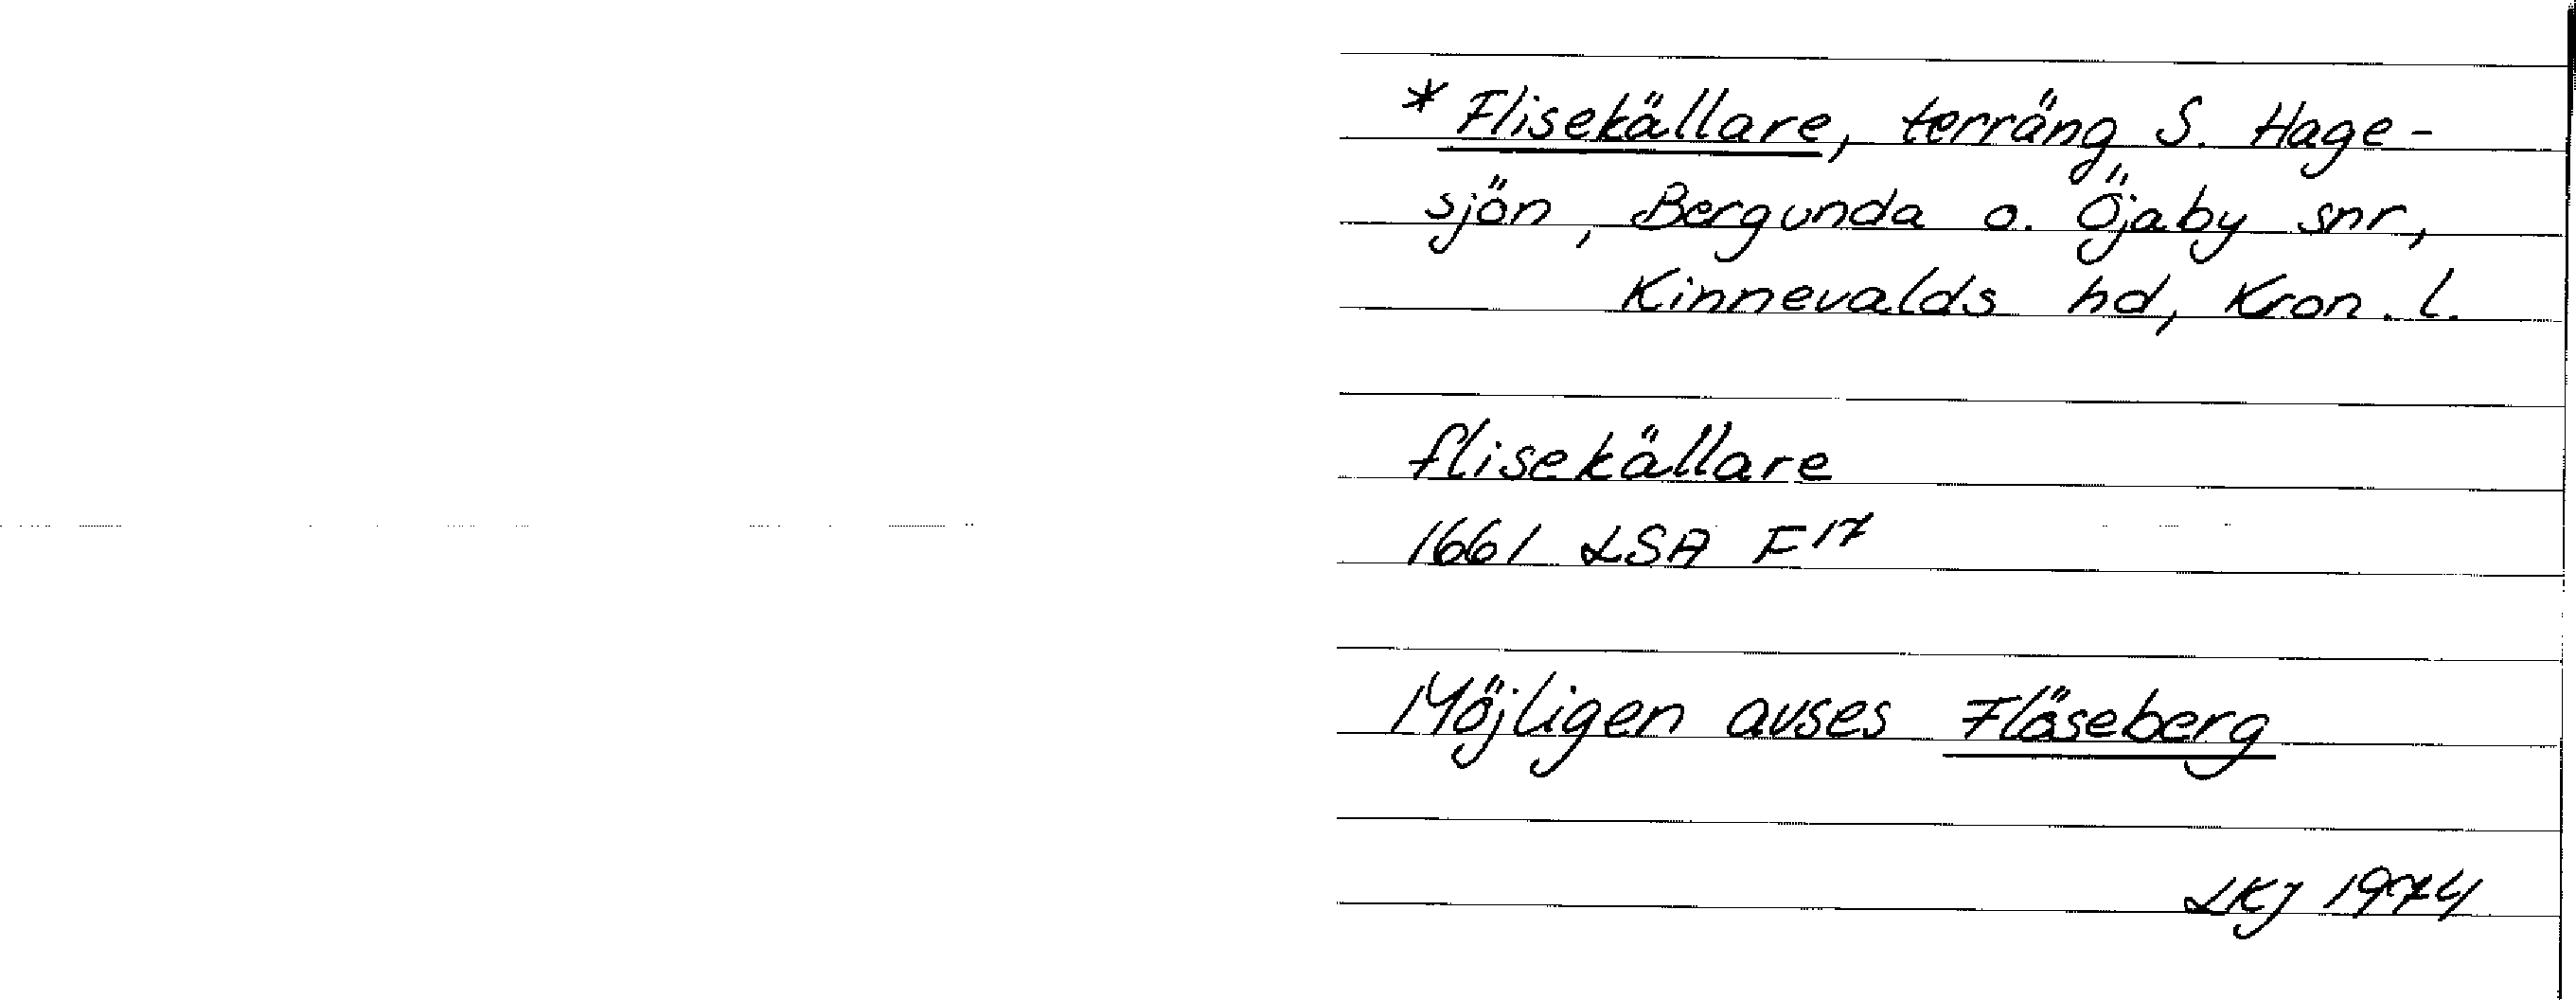 * Flisekällare, terräng S. Hage-
sjön, Bergunda o. Öjaby snr,
Kinnevalds hd, Kron. l.
flisekällare
1661 LSA F17
Möjligen avses Fläseberg
LKJ 1974